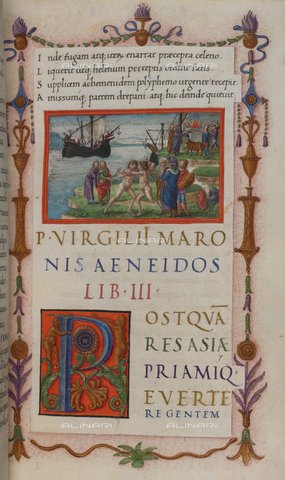 I nde fugam atq; item enarrat præcepta celeno.
L iquerit utq; helenum perceptis ordine fatis
S upplicem achemenidem polyphemo urgente recepit
A missumq; patrem drepani atq; huc deinde quieuit.
P·VIRGILII MARO
NIS AENEIDOS
LIB·III·
P OSTQVĀ
RES ASIÆ
PRIAMIQ·
EVERTE
RE GENTEM
ALINARI
ALINARI